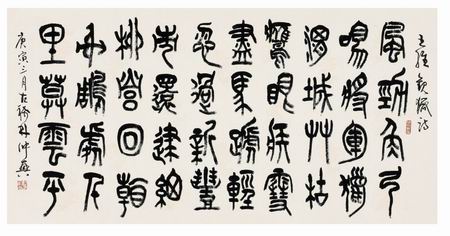 王維觀獵詩
風勁角弓
鳴將軍獵
渭城艸枯
鷹眼疾雪
盡馬蹄輕
忽過新豐
市還歸細
柳營回看
射鵰處千
里莫雲平
庚寅三月古稀林仲興